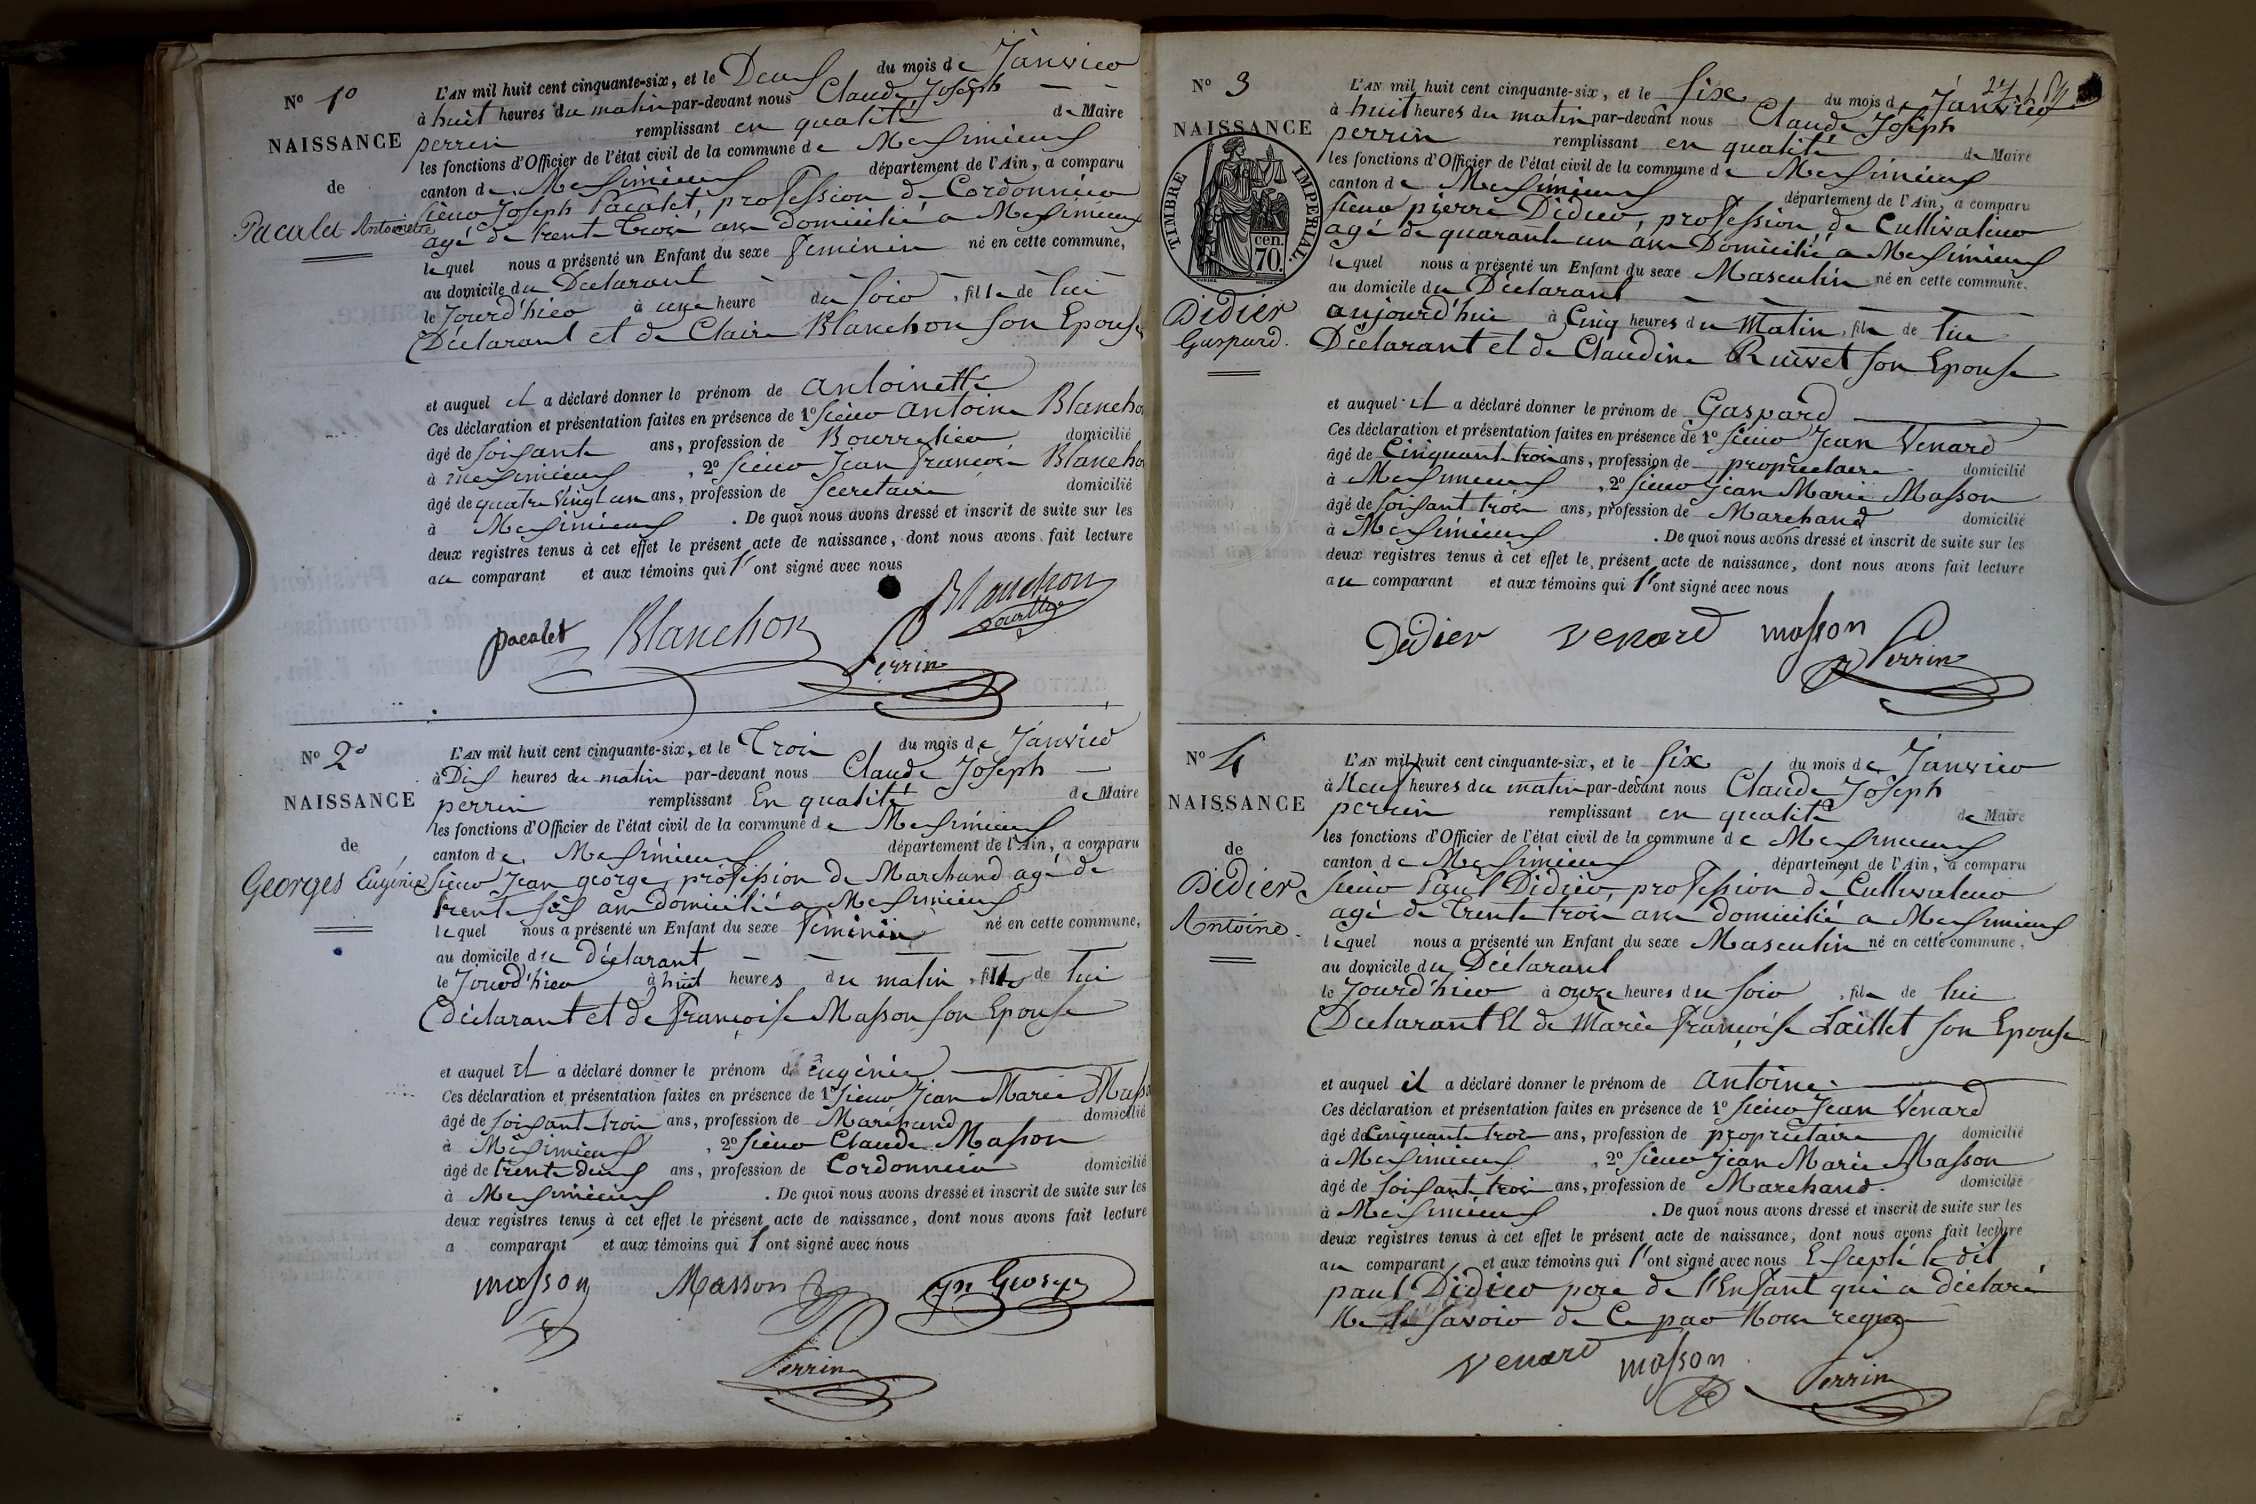 No 1o
NAISSANCE
de
Pacalet Antoinette
L'AN mil huit cent cinquante-six, et le Deux du mois de Janvier
à huit heures du matin par-devant nous Claude Joseph
perrin remplissant en qualité de Maire
les fonctions d'Officier de l'état civil de la commune de Meximieux
canton de Meximieux département de l'Ain, a comparu
sieur Joseph Pacalet, profession de Cordonnier
agé de trente trois ans domicilié a Meximieux
lequel nous a présenté un Enfant du sexe feminin né en cette commune,
au domicile du Declarant
le Jourd'hier à une heure du soir, fille de lui
Déclarant et de Claire Blanchon son Epouse
et auquel il a déclaré donner le prénom de antoinette
Ces déclaration et présentation faites en présence de 1o sieur antoine Blanchon
âgé de soixante ans, profession de Bourrelier domicilié
à meximieux, 2o sieur Jean francois Blanchon
âgé de quatre Vingt un ans, profession de secretaire domicilié
à Meximieux. De quoi nous avons dressé et inscrit de suite sur les
deux registres tenus à cet effet le présent acte de naissance, dont nous avons fait lecture
au comparant et aux témoins qui l'ont signé avec nous
pacalet Blanchon Blanchon
Perrin
No 2o
NAISSANCE
de
Georges Eugénie
L'AN mil huit cent cinquante-six, et le Trois du mois de Janvier
à Dix heures du matin par-devant nous Claude Joseph
perrin remplissant En qualité de Maire
les fonctions d'Officier de l'état civil de la commune de Meximieux
canton de Meximieux département de l'Ain, a comparu
sieur Jean george, profession de Marchand agé de
trente six ans domicilié a Meximieux
lequel nous a présenté un Enfant du sexe féminin né en cette commune,
au domicile du déclarant
le Jourd'hier à huit heures du matin, fille de lui
déclarant et de françoise Masson son Epouse
et auquel il a déclaré donner le prénom d'eugénie
Ces déclaration et présentation faites en présence de 1o sieur Jean Marie Masson
âgé de soixante trois ans, profession de Marchand domicilié
à Meximieux, 2o sieur Claude Masson
âgé de trente deux ans, profession de Cordonnier domicilié
à Meximieux. De quoi nous avons dressé et inscrit de suite sur les
deux registres tenus à cet effet le présent acte de naissance, dont nous avons fait lecture
a comparant et aux témoins qui l'ont signé avec nous
masson Masson
Perrin
No 3
NAISSANCE
TIMBRE IMPERIAL
cen.
70.
Didier
Gaspard.
L'AN mil huit cent cinquante-six, et le six du mois de Janvier
à huit heures du matin par-devant nous Claude Joseph
perrin remplissant en qualité de Maire
les fonctions d'Officier de l'état civil de la commune de Meximieux
canton de Meximieux département de l'Ain, a comparu
sieur pierre Didier, profession de Cultivateur
agé de quarante un ans Domicilié a Meximieux
lequel nous a présenté un Enfant du sexe Masculin né en cette commune.
au domicile du Déclarant
aujourd'hui à Cinq heures du Matin, fils de lui
Déclarant et de Claudine Ruivet son Epouse
et auquel il a déclaré donner le prénom de Gaspard
Ces déclaration et présentation faites en présence de 1o sieur Jean Venard
âgé de Cinquante trois ans, profession de proprietaire domicilié
à Meximieux, 2o sieur Jean Marie Masson
âgé de soixante trois ans, profession de Marchand domicilié
à Meximieux. De quoi nous avons dressé et inscrit de suite sur les
deux registres tenus à cet effet le présent acte de naissance, dont nous avons fait lecture
au comparant et aux témoins qui l'ont signé avec nous
Didier Venard masson
Perrin
No 4
NAISSANCE
de
Didier
Antoine.
L'AN mil huit cent cinquante-six, et le six du mois de Janvier
à Neuf heures du matin par-devant nous Claude Joseph
perrin remplissant en qualité de Maire
les fonctions d'Officier de l'état civil de la commune de Meximieux
canton de Meximieux département de l'Ain, a comparu
sieur Paul Didier, profession de Cultivateur
agé de trente trois ans domicilié a Meximieux
lequel nous a présenté un Enfant du sexe Masculin né en cette commune,
au domicile du Déclarant
le Jourd'hier à onze heures du soir, fils de lui
Déclarant Et de Marie françoise Laillet son Epouse
et auquel il a déclaré donner le prénom de antoine
Ces déclaration et présentation faites en présence de 1o sieur Jean Venard
âgé de Cinquante trois ans, profession de proprietaire domicilié
à Meximieux, 2o sieur Jean Marie Masson
âgé de soixante trois ans, profession de Marchand domicilié
à Meximieux. De quoi nous avons dressé et inscrit de suite sur les
deux registres tenus à cet effet le présent acte de naissance, dont nous avons fait lecture
au comparant et aux témoins qui l'ont signé avec nous Excepté le dit
paul Didier pere de l'Enfant qui a déclaré
Ne le savoir de Ce par Nous requis
Venard masson Perrin